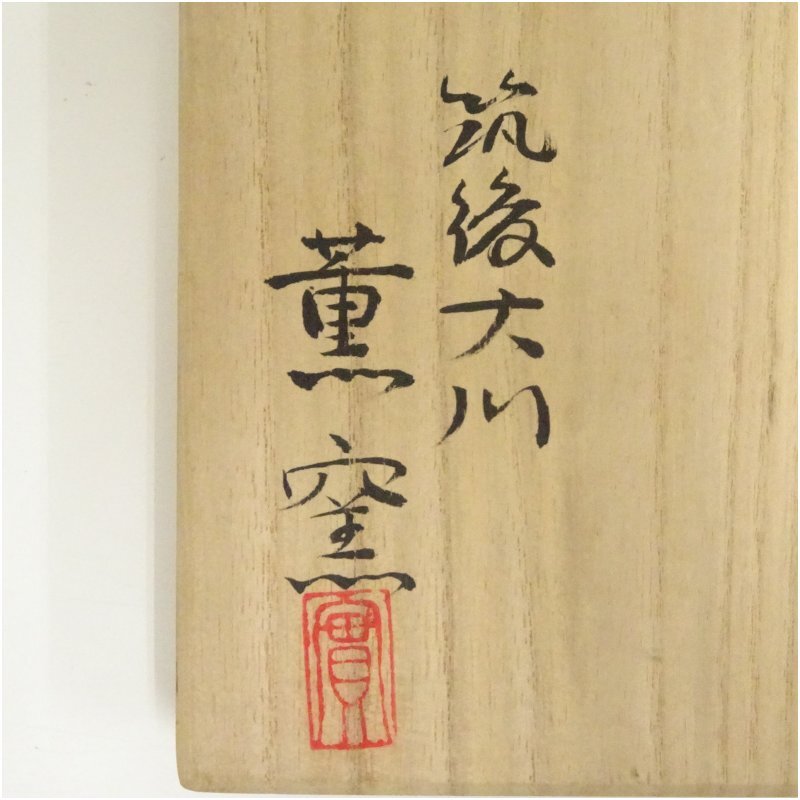 筑後大川
薫窯
實